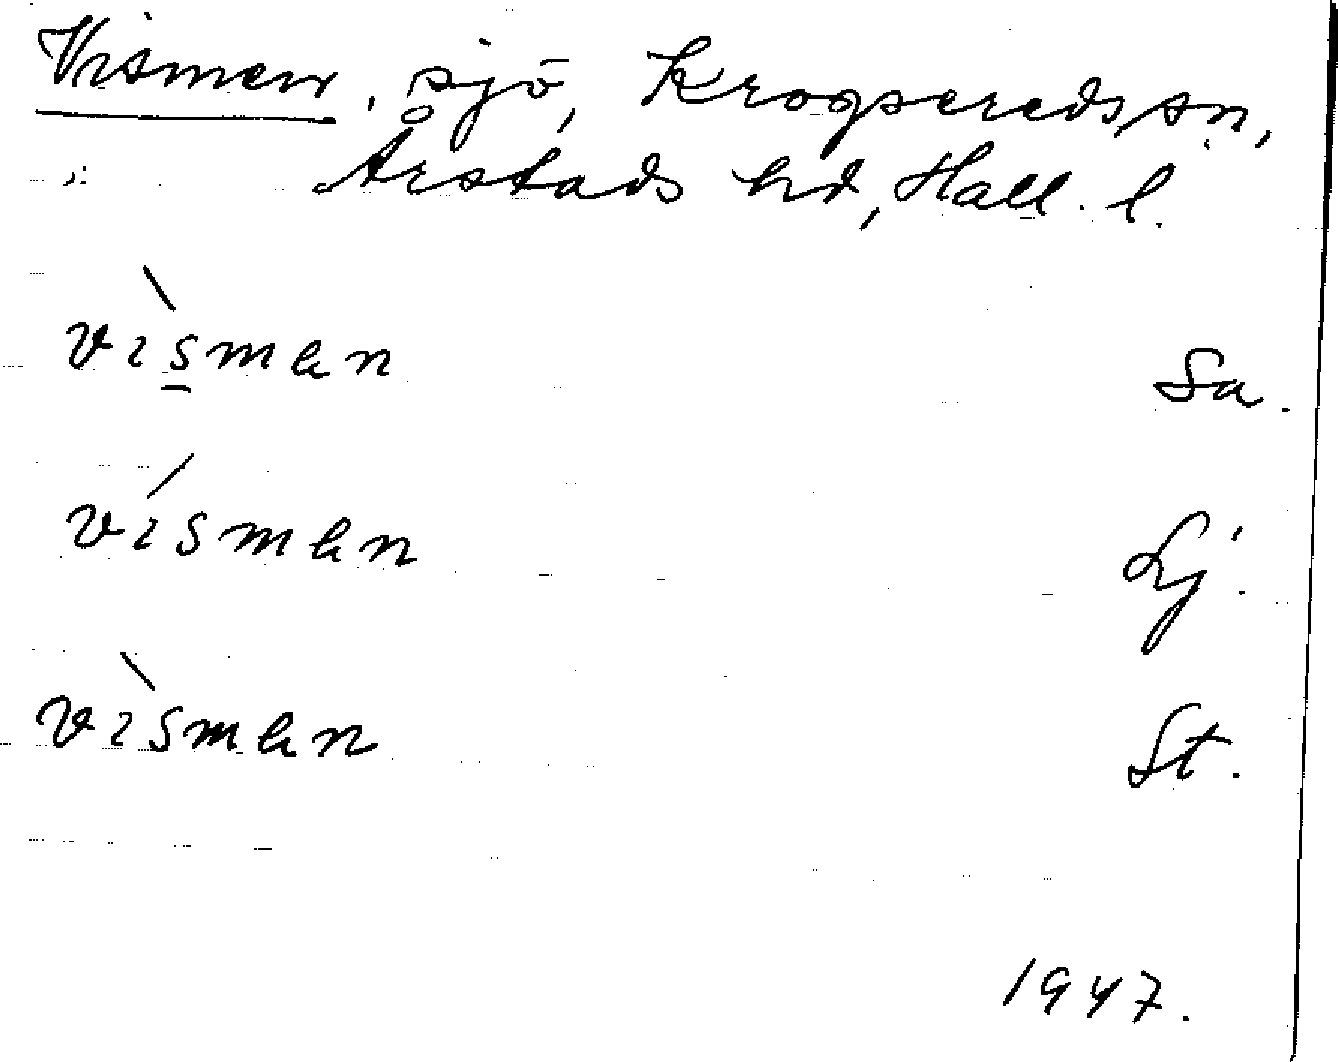 Vismen, sjö, Krogsereds sn,
Årstads hd, Hall. l.
vìsmen Sa.
vísmen Lj.
vìsmen St.
1947.